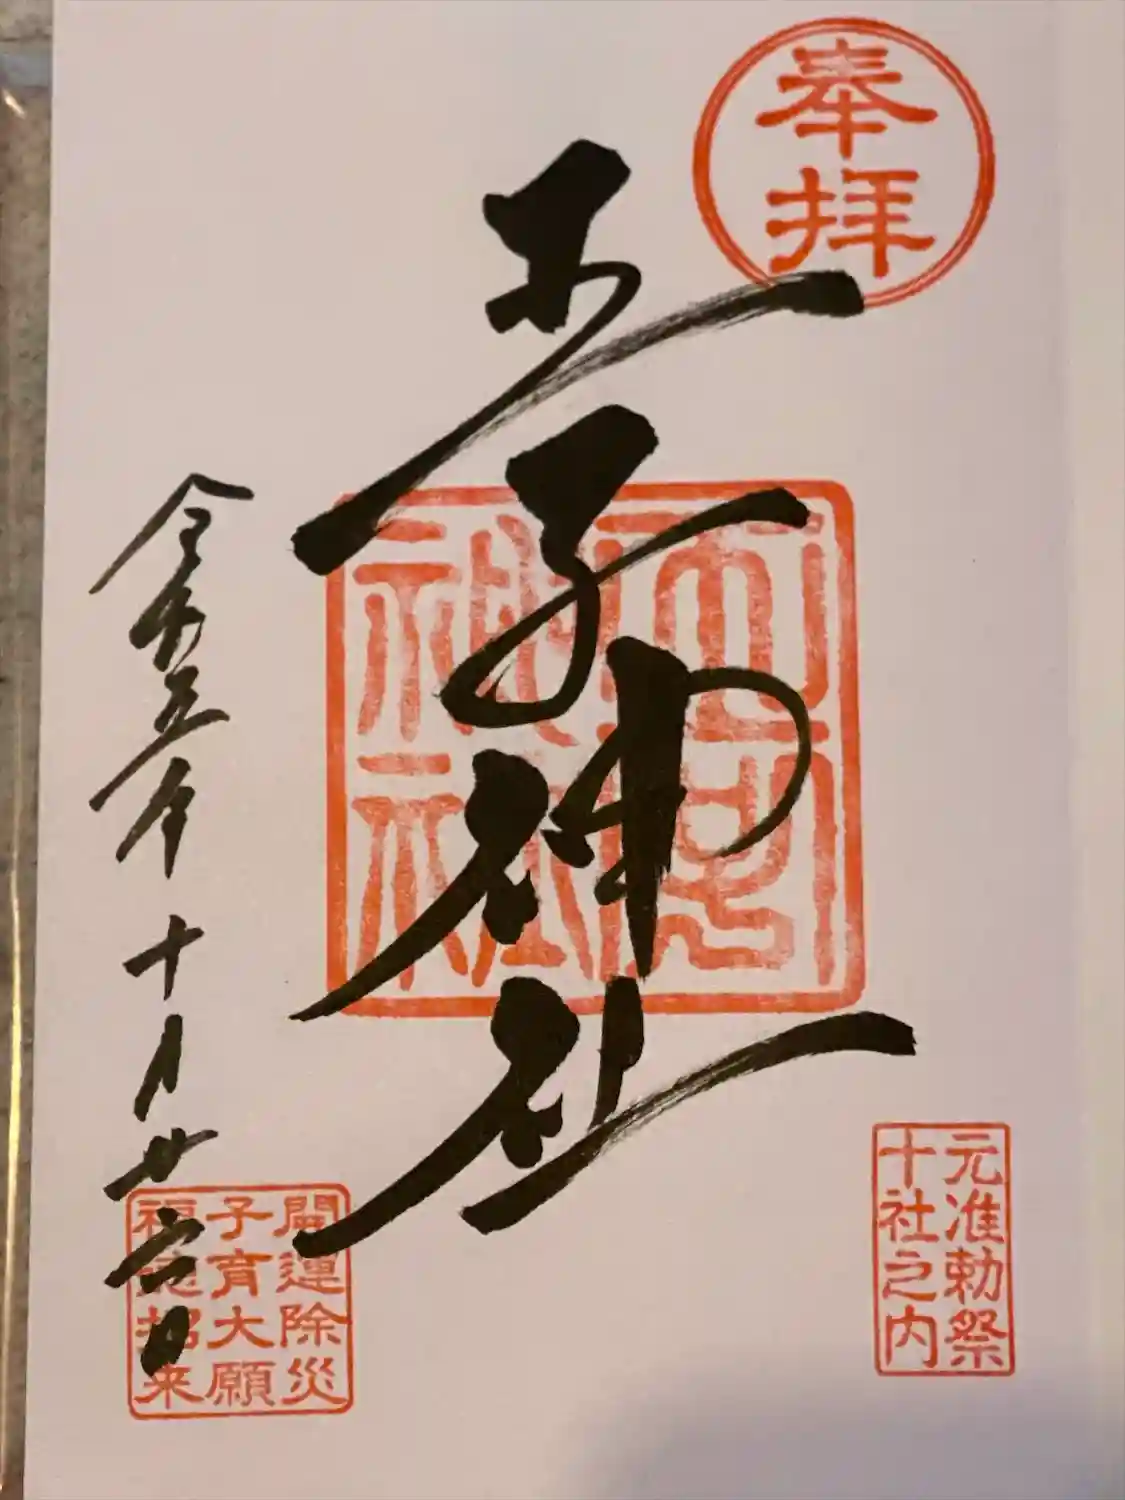 奉拝
元准勅祭
十社之内
王子神社
令和五年十月廿六日
開運除災
子育大願
福徳招来